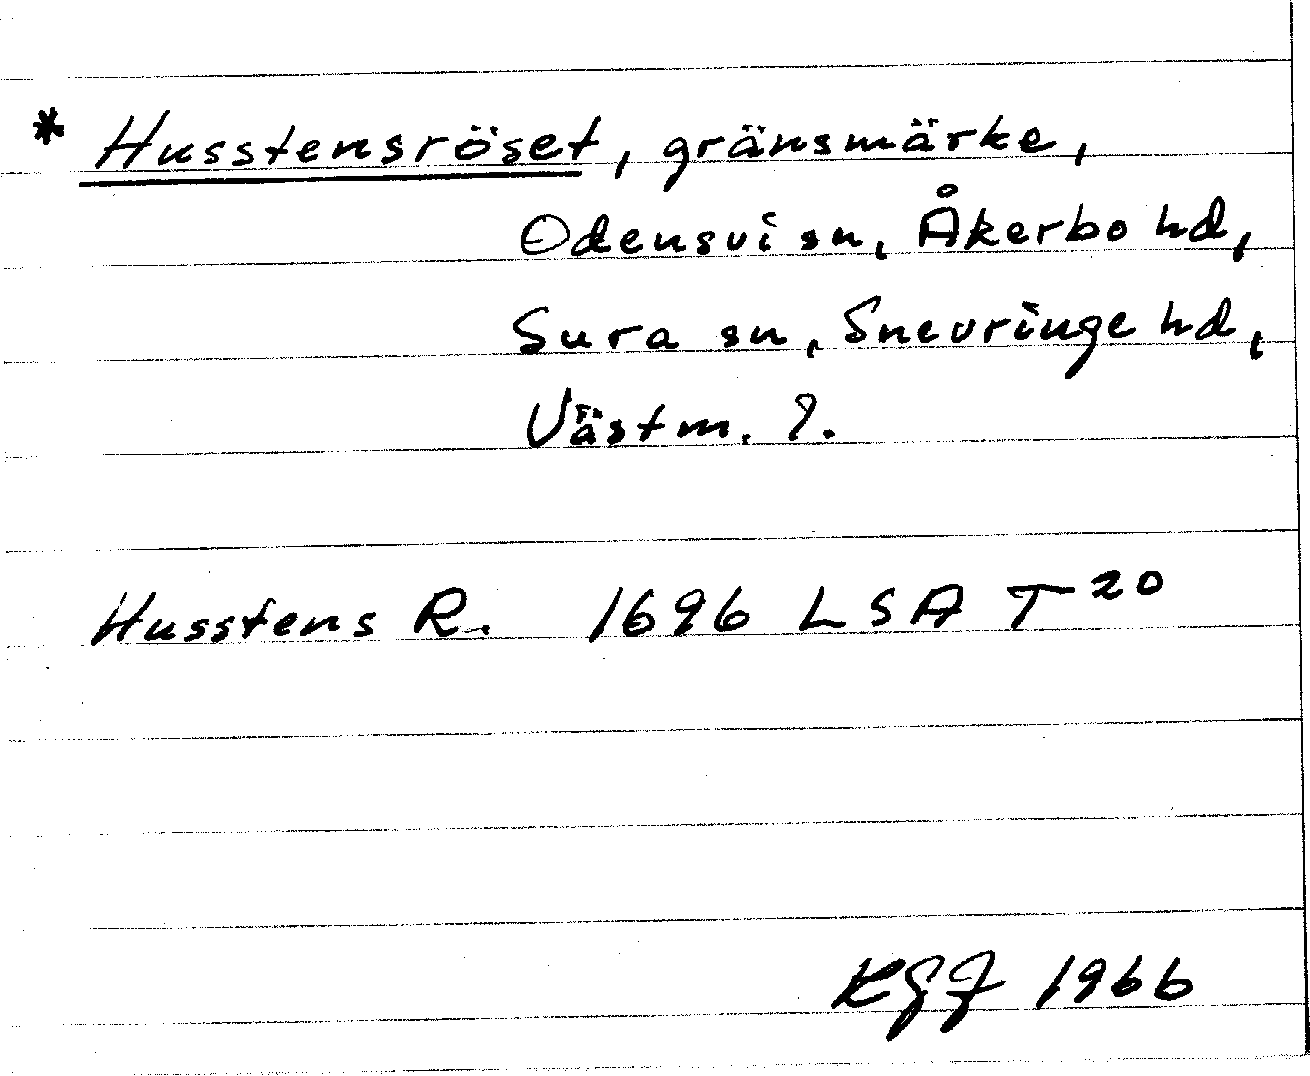 * Husstensröset, gränsmärke,
Odensvi sn, Åkerbo hd,
Sura sn, Snevringe hd,
Västm. ?.
Husstens R. 1696 LSA T 20
KGJ 1966